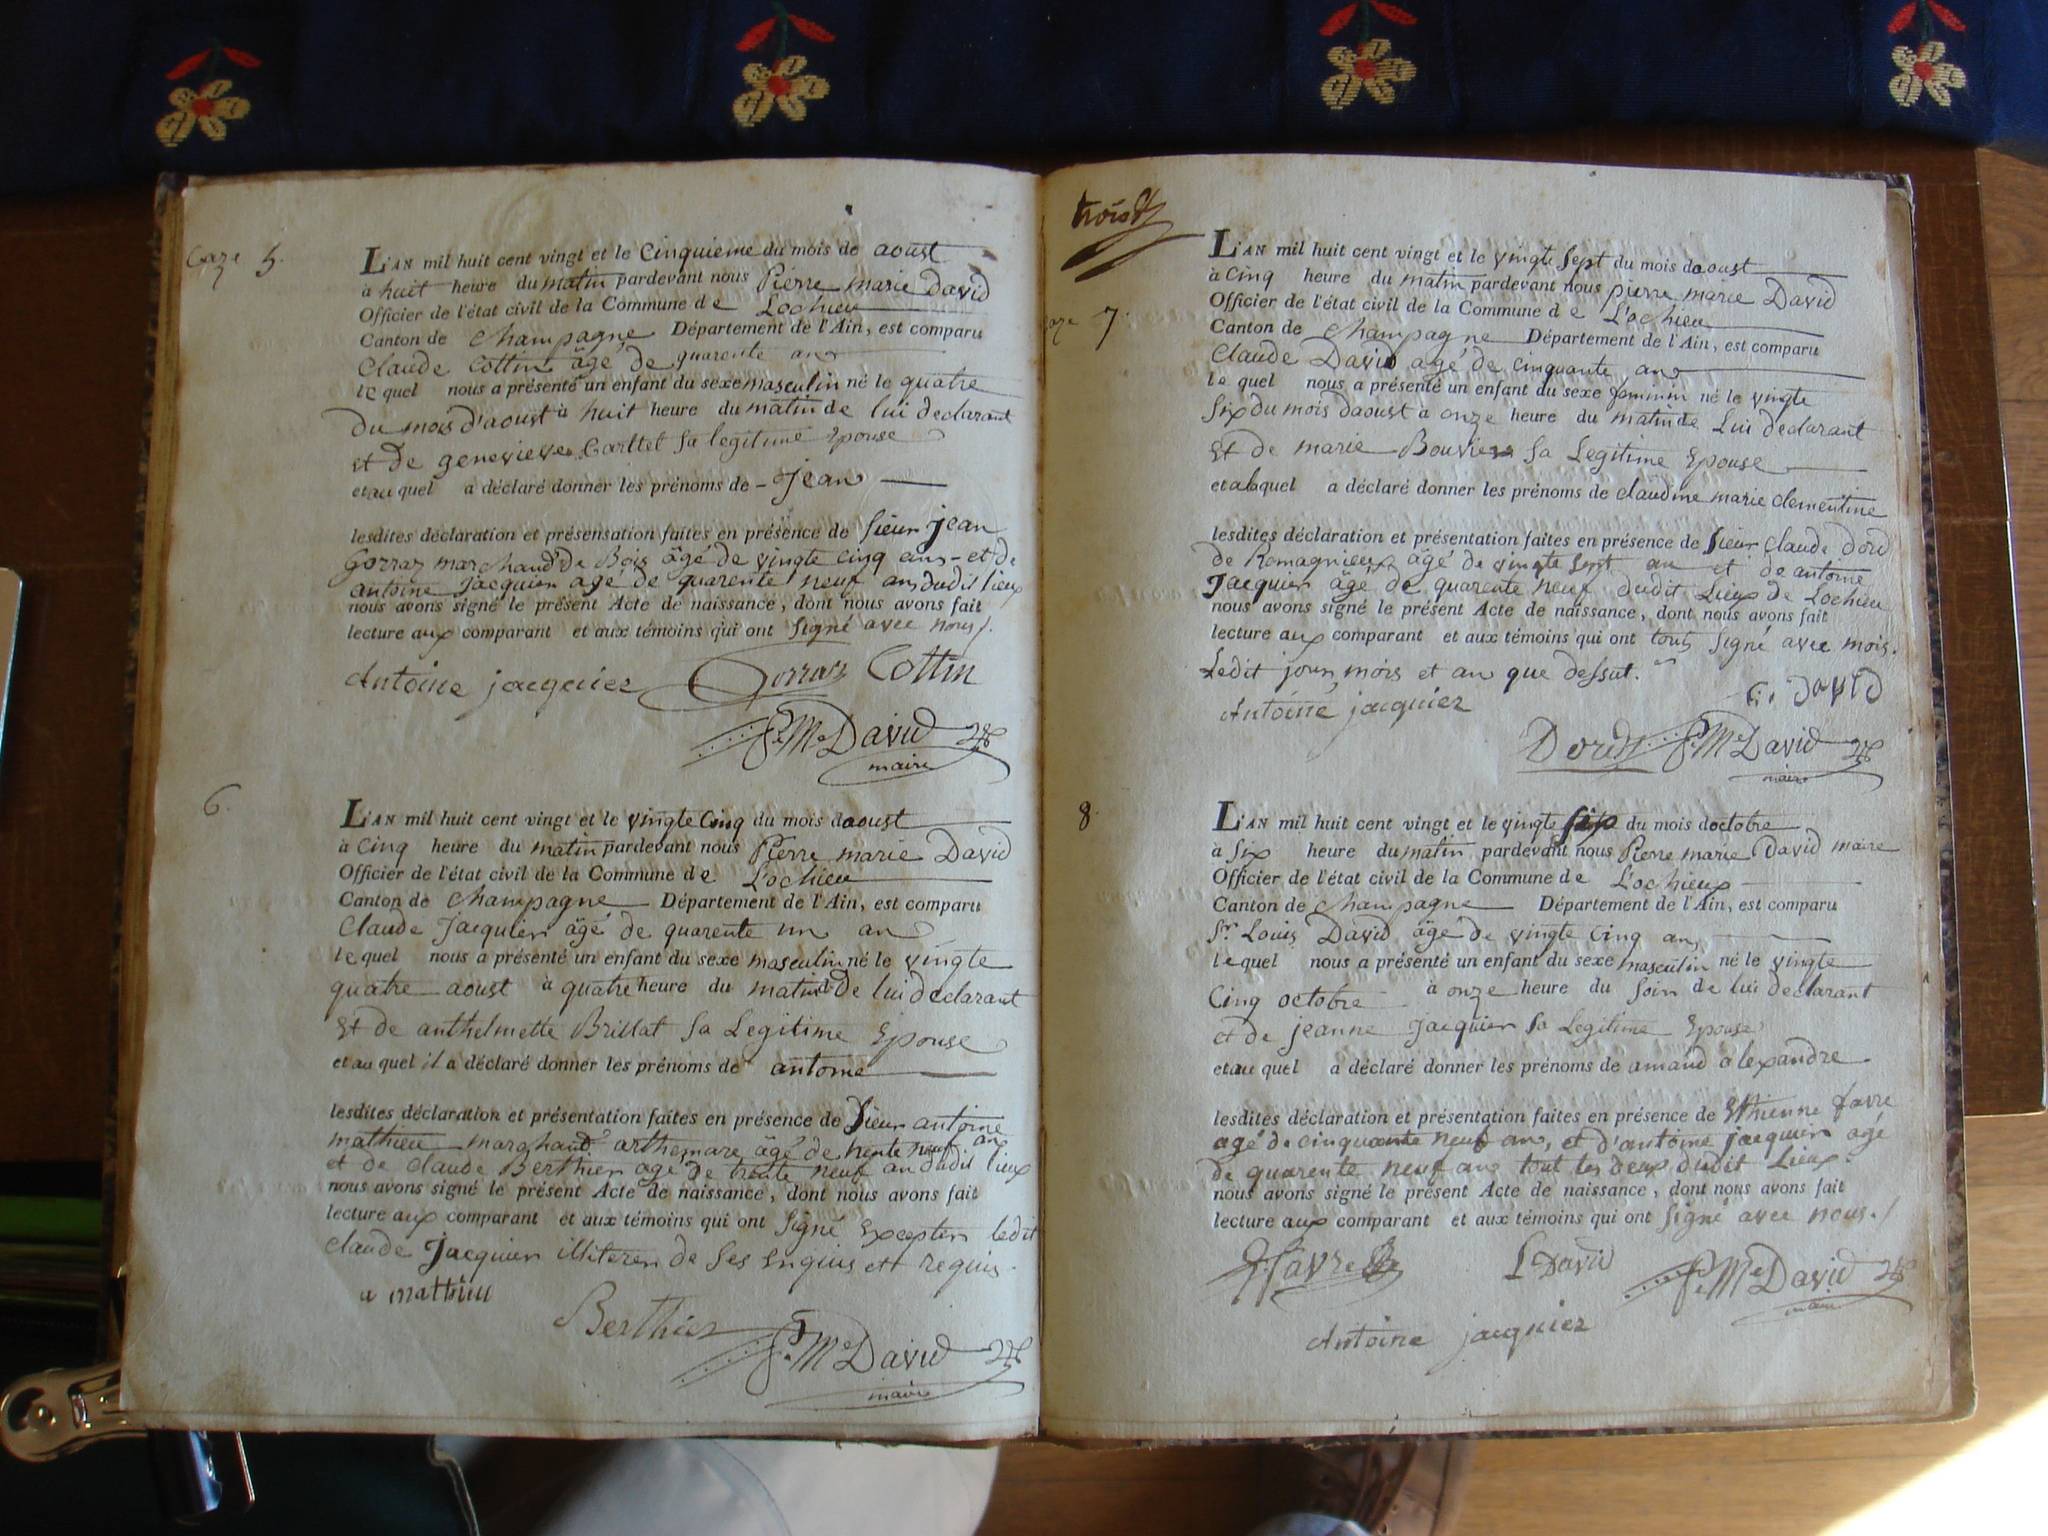 5.
L'AN mil huit cent vingt et le Cinquieme du mois de aoust
à huit heure du matin pardevant nous Pierre marie David
Officier de l'état civil de la Commune de Lochieu
Canton de Champagne Département de l'Ain, est comparu
Claude Cottin âgé de quarente ans
le quel nous a présenté un enfant du sexe masculin né le quatre
du mois d'aoust à huit heure du matin de lui declarant
et de genevieve Carltet sa legitime Epouse
et au quel a déclaré donner les prénoms de - Jean
lesdites déclaration et présensation faites en présence de sieur jean
Gorraz marchand de Bois âgé de vingte cinq ans - et de
antoine Jacquier agé de quarente neuf ans dudit lieux
nous avons signé le présent Acte de naissance, dont nous avons fait
lecture aux comparant et aux témoins qui ont signé avec nous /.
Antoine jacquier Gorraz Cottin
P. Me David
maire
6.
L'AN mil huit cent vingt et le vingte Cinq du mois daoust
à Cinq heure du matin pardevant nous Pierre marie David
Officier de l'état civil de la Commune de L'ochieu
Canton de Champagne Département de l'Ain, est comparu
Claude Jacquier âgé de quarente un an
le quel nous a présenté un enfant du sexe masculin né le vingte
quatre aoust à quatre heure du matin de lui declarant
Et de anthelmette Brillat sa Legitime Epouse
et au quel il a déclaré donner les prénoms de antoine
lesdites déclaration et présentation faites en présence de sieur antoine
mathieu marchand arthemare âgé de trente neuf an
et de claude Berthier agé de trente neuf an dudit lieux
nous avons signé le présent Acte de naissance, dont nous avons fait
lecture aux comparant et aux témoins qui ont signé Excepter ledit
claude Jacquier illiterer de ses enquis et requis.
a mathieu
Berthier
P. Me David
maire
trois
7.
L'AN mil huit cent vingt et le vingte sept du mois daoust
à Cinq heure du matin pardevant nous pierre marie David
Officier de l'état civil de la Commune de L'ochieu
Canton de Champagne Département de l'Ain, est comparu
Claude David agé de cinquante an
le quel nous a présenté un enfant du sexe feminin né le vingte
six du mois daoust à onze heure du matin de Lui declarant
Et de marie Bouvier sa Legitime Epouse
et alaquel a déclaré donner les prénoms de claudine marie clementine
lesdites déclaration et présentation faites en présence de sieur Claude Dord
de Romagnieux âgé de vingte sept an et de antoine
Jacquier âgé de quarente neuf dudit Lieux de Lochieu
nous avons signé le présent Acte de naissance, dont nous avons fait
lecture aux comparant et aux témoins qui ont touts signé avec mois.
Ledit jour mois et an que dessut.
C. David
Antoine jacquier
Dord P. Me David
maire
8.
L'AN mil huit cent vingt et le vingte six du mois doctobre
à six heure du matin pardevant nous Pierre marie David maire
Officier de l'état civil de la Commune de L'ochieux
Canton de Champagne Département de l'Ain, est comparu
Sr. Louis David âgé de vingte cinq an,
le quel nous a présenté un enfant du sexe masculin né le vingte
Cinq octobre à onze heure du soir de lui declarant
et de jeanne Jacquier sa Legitime Epouse
et au quel a déclaré donner les prénoms de amand alexandre
lesdites déclaration et présentation faites en présence de Ethienne favre
agé de cinquante neuf an, et d'antoine jacquier agé
de quarente neuf an tout les deux dudit Lieux
nous avons signé le présent Acte de naissance, dont nous avons fait
lecture aux comparant et aux témoins qui ont signé avec nous. /
favre L David P. Me David
maire
Antoine jacquier